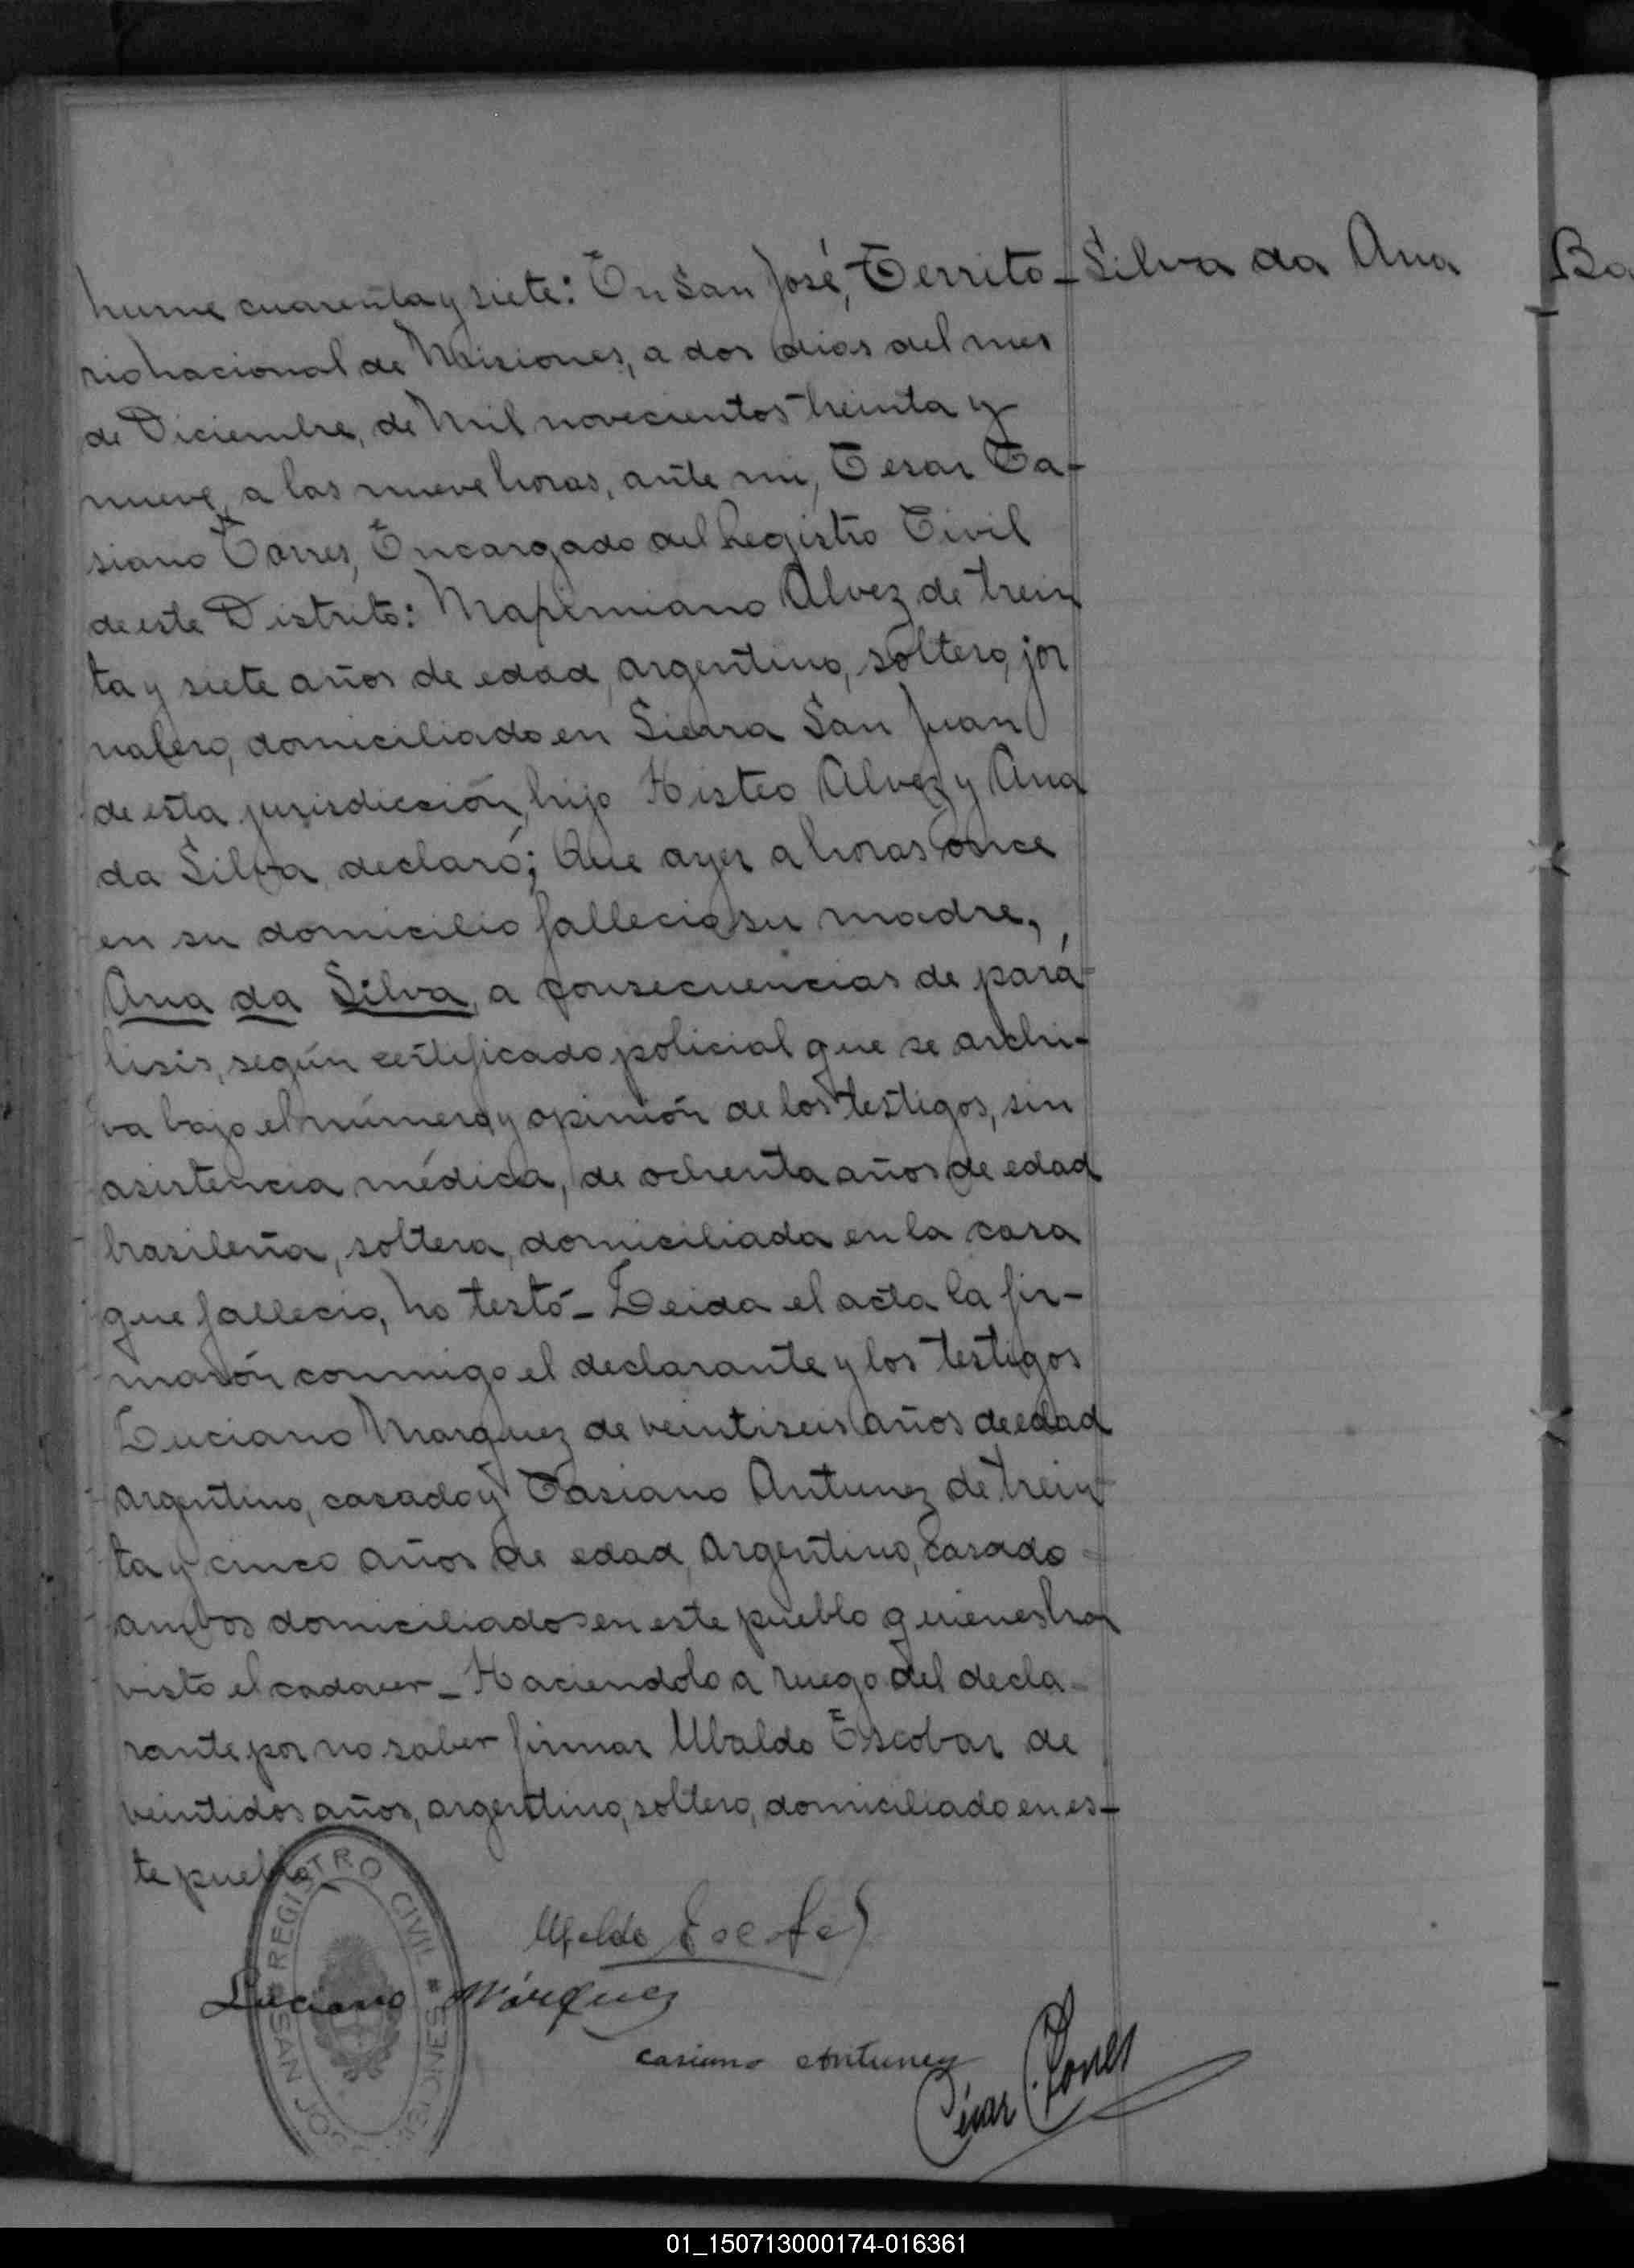 Nume cuarenta y siete: En San José, Territo- Silva da Ana
rio Nacional de Misiones, a dos dias del mes
de Diciembre, de Mil novecientos treinta y
nueve, a las nueve horas, ante mi, Cesar Ca-
siano Torres, Encargado del Registro Civil
de este Distrito: Maximiano Alvez de trein
ta y siete años de edad, argentino, soltero, jor
nalero, domiciliado en Sierra San Juan
de esta jurisdicción, hijo Alvez y Ana
da Silva, declaró; Que ayer a horas once
en su domicilio fallecio su madre,
Ana da Silva, a consecuencias de pará-
lisis, según certificado policial que se archi-
va bajo el número y opinión de los testigos, sin
asistencia médica, de ochenta años de edad
brasileña, soltera, domiciliada en la casa
que fallecio, no testó- Leida el acta la fir-
marón conmigo el declarante y los testigos
Luciano Marquez de veintiseis años de edad
argentino, casado y Casiano Antunez de trein-
ta y cinco años de edad, Argentino, Casado -
ambos domiciliados en este pueblo quienes han
visto el cadaver - Haciendolo a ruego del decla-
rante por no saber firmar Ubaldo Escobar de
veintidos años, argentino, soltero, domiciliado en es-
te pueblo
Ubaldo Escobar
Luciano Márquez
casiano Antunez
César C. Torres
REGISTRO CIVIL
SAN JOSE MISIONES
Ba
01_150713000174-016361